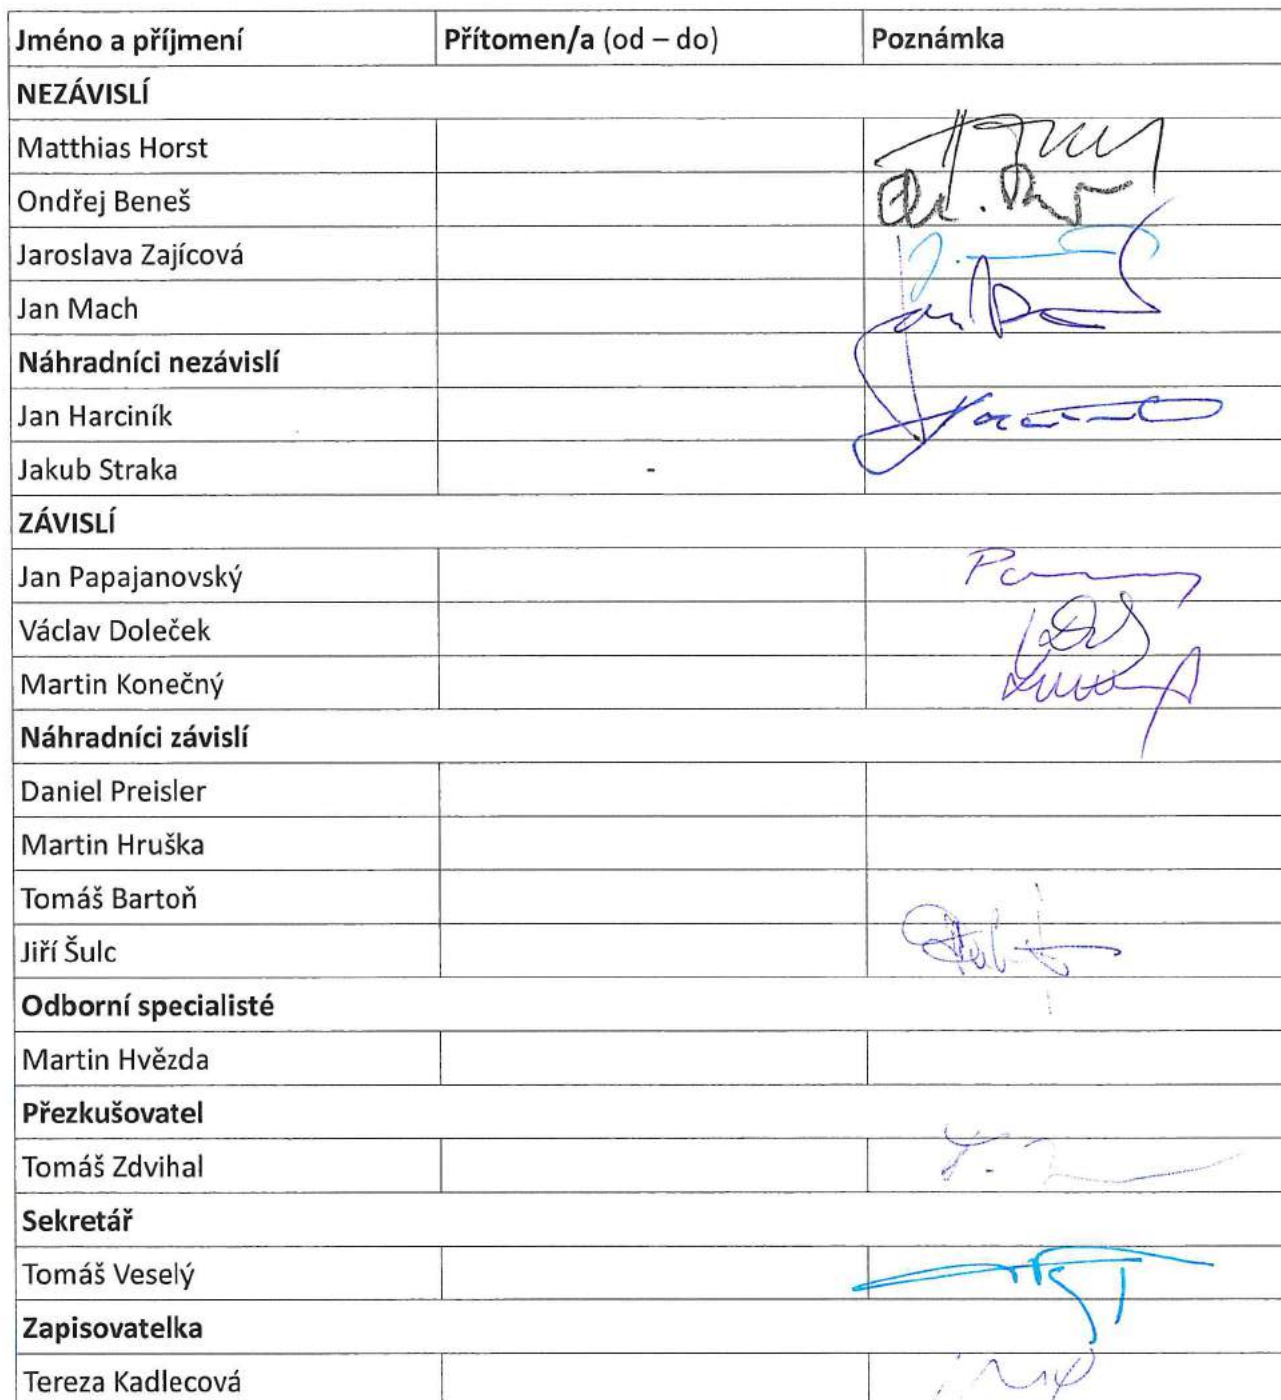 Jméno a příjmení Přítomen/a (od – do) Poznámka
NEZÁVISLÍ
Matthias Horst
Ondřej Beneš
Jaroslava Zajícová
Jan Mach
Náhradníci nezávislí
Jan Harciník
Jakub Straka -
ZÁVISLÍ
Jan Papajanovský
Václav Doleček
Martin Konečný
Náhradníci závislí
Daniel Preisler
Martin Hruška
Tomáš Bartoň
Jiří Šulc
Odborní specialisté
Martin Hvězda
Přezkušovatel
Tomáš Zdvihal
Sekretář
Tomáš Veselý
Zapisovatelka
Tereza Kadlecová